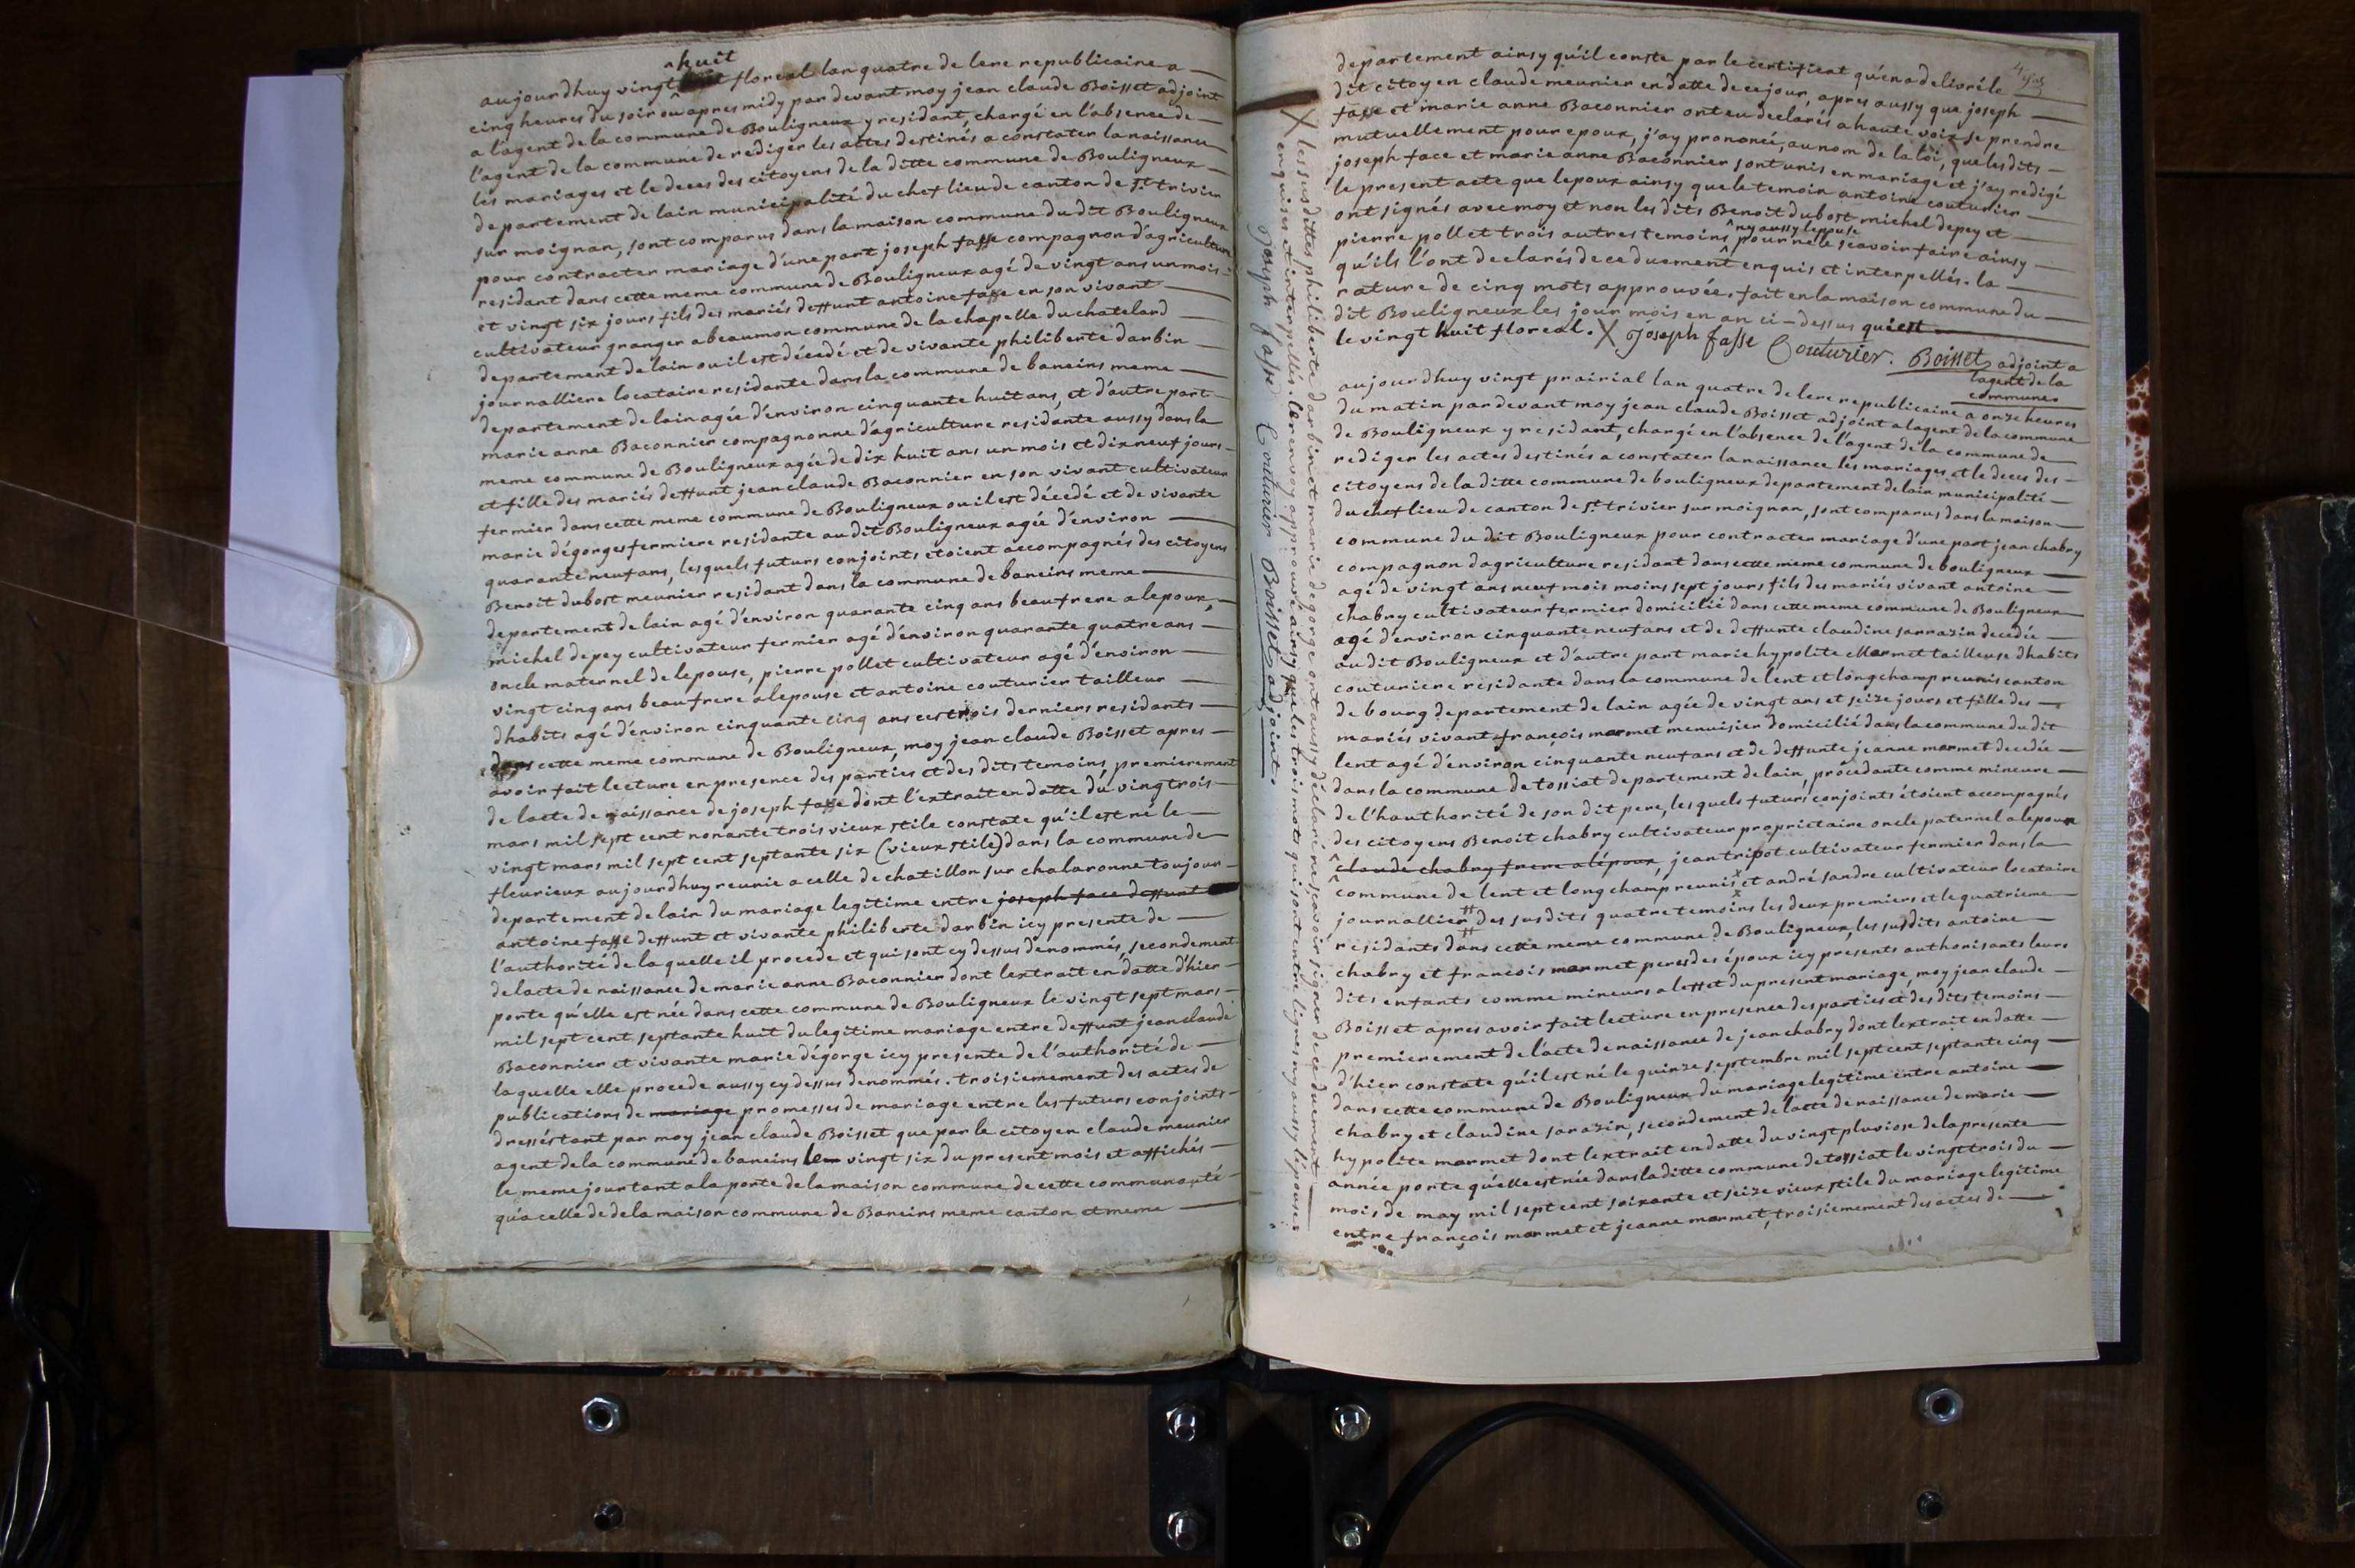 aujourdhuy vingt huit floreal lan quatre de lere republicaine a
cinq heures du soir ou apres midy par devant moy jean claude Boisset adjoint
a l'agent de la commune de Bouligneux y residant, chargé en l'absence de
l'agent de la commune de rediger les actes destinés a constater la naissance
les mariages et le deces des citoyens de la ditte commune de Bouligneux
departement de lain municipalité du chef lieu de canton de st trivier
sur moignan, sont comparus dans la maison commune du dit Bouligneux
pour contracter mariage d'une part joseph fasse compagnon d'agriculture
residant dans cette meme commune de Bouligneux agé de vingt ans un mois
et vingt six jours fils des mariés deffunt antoine fasse en son vivant
cultivateur granger a beaumon commune de la chapelle du chatelard
departement de lain ou il est décedé et de vivante philiberte darbin
journalliere locataire residante dans la commune de baneins meme
departement de lain agée d'environ cinquante huit ans, et d'autre part
marie anne Baconnier compagnonne d'agriculture residante aussy dans la
meme commune de Bouligneux agée de dix huit ans un mois et dix neuf jours
et fille des mariés deffunt jean claude Baconnier en son vivant cultivateur
fermier dans cette meme commune de Bouligneux ou il est décedé et de vivante
marie dégorges fermiere residante au dit Bouligneux agée d'environ
quarante neuf ans, lesquels futurs conjoints etoient accompagnés des citoyens
Benoit dubost meunier residant dans la commune de baneins meme
departement de lain agé d'environ quarante cinq ans beaufrere a lepoux,
michel depey cultivateur fermier agé d'environ quarante quatre ans
oncle maternel de lepouse, pierre pollet cultivateur agé d'environ
vingt cinq ans beaufrere a lepouse et antoine couturier tailleur
dhabits agé d'environ cinquante cinq ans ces trois derniers residants
dans cette meme commune de Bouligneux, moy jean claude Boisset apres
avoir fait lecture en presence des parties et des dits temoins, premierement
de lacte de naissance de joseph fasse dont l'extrait en datte du vingt trois
mars mil sept cent nonante trois vieux stile constate qu'il est né le
vingt mars mil sept cent septante six (vieux stile) dans la commune de
fleurieux aujourdhuy reunie a celle de chatillon sur chalaronne toujour
departement de lain du mariage legitime entre joseph face deffunt
antoine fasse deffunt et vivante philiberte darbin icy presente de
l'authorité de laquelle il procede et qui sont cy dessus denommés, secondement
de lacte de naissance de marie anne Baconnier dont lextrait en datte d'hier
porte qu'elle est née dans cette commune de Bouligneux le vingt sept mars
mil sept cent septante huit du legitime mariage entre deffunt jean claude
Baconnier et vivante marie dégorge icy presente de l'authorité de
laquelle elle procede aussy cy dessus denommés. troisiemement des actes de
publications de mariage promesses de mariage entre les futurs conjoints
dressés tant par moy jean claude Boisset que par le citoyen claude meunier
agent de la commune de baneins le vingt six du present mois et affichés
le meme jour tant a la porte de la maison commune de cette communauté
qu'a celle de de la maison commune de Baneins meme canton et meme
departement ainsy qu'il conste par le certificat qu'en a delivré le
dit citoyen claude meunier en datte de ce jour, apres aussy que joseph
fasse et marie anne Baconnier ont eu declarés a haute voix se prendre
mutuellement pour epoux, j'ay prononcé, au nom de la loi, que les dits
joseph face et marie anne Baconnier sont unis en mariage et j'ay redigé
le present acte que lepoux ainsy que le temoin antoine couturier
ont signés avec moy et non les dits Benoit dubost michel depey et
ny aussy lepouse
pierre pollet trois autres temoins pour ne le scavoir faire ainsy
qu'ils l'ont declarés de ce duement enquis et interpellés. la
rature de cinq mots approuvée. fait en la maison commune du
dit Bouligneux les jour mois en an ci-dessus qui est
le vingt huit floreal. X joseph fasse Couturier. Boisset adjoint a
lagent de la
commune
X les susdittes philiberte darbin et marie degorge ont aussy déclaré ne scavoir signer de ce duement
enquises et interpellés. le renvoy approuvé ainsy que les trois mots qui sont entre lignes ny aussy lépouse
joseph fasse Couturier Boisset adjoint.
aujourdhuy vingt prairial lan quatre de lere republicaine a onze heures
du matin pardevant moy jean claude Boisset adjoint a lagent de la commune
de Bouligneux y residant, chargé en l'absence de l'agent de la commune de
rediger les actes destinés a constater la naissance les mariages et le deces des
citoyens de la ditte commune de bouligneux departement de lain municipalité
du chef lieu de canton de st trivier sur moignan, sont comparus dans la maison
commune du dit Bouligneux pour contracter mariage d'une part jean chabry
compagnon dagriculture residant dans cette meme commune de bouligneux
agé de vingt ans neuf mois moins sept jours fils des mariés vivant antoine
chabry cultivateur fermier domicilié dans cette meme commune de Bouligneux
agé d'environ cinquante neuf ans et de deffunte claudine sarrazin decedée
au dit Bouligneux et d'autre part marie hypolite Marmet tailleuse dhabits
couturiere residante dans la commune de lent et longchamp reunis canton
de bourg departement de lain agée de vingt ans et seize jours et fille des
mariés vivant françois marmet menuisier domicilié dans la commune du dit
lent agé d'environ cinquante neuf ans et de deffunte jeanne marmet decedée
dans la commune de tossiat departement de lain, procedante comme mineure
de l'hauthorité de son dit pere, les quels futurs conjoints étoient accompagnés
des citoyens Benoit chabry cultivateur proprietaire oncle paternel a lepoux
claude chabry frere a lépoux, jean tripot cultivateur fermier dans la
commune de lent et longchamp reunis et andré sandre cultivateur locataire
journallier des susdits quatre temoins les deux premiers et le quatrieme
residants dans cette meme commune de Bouligneux, les susdits antoine
chabry et francois marmet peres des époux icy presents authorisants leurs
dits enfants comme mineurs a leffet du present mariage, moy jean claude
Boisset apres avoir fait lecture en presence des parties et des dits temoins
premierement de l'acte de naissance de jean chabry dont lextrait en datte
d'hier constate qu'il est né le quinze septembre mil sept cent septante cinq
dans cette commune de Bouligneux du mariage legitime entre antoine
chabry et claudine sarazin, secondement de lacte de naissance de marie
hypolite marmet dont lextrait en datte du vingt pluviose de la presente
année porte qu'elle est née dans la ditte commune de tossiat le vingt trois du
mois de may mil sept cent soixante et seize vieux stile du mariage legitime
entre françois marmet et jeanne marmet, troisiemement des actes de